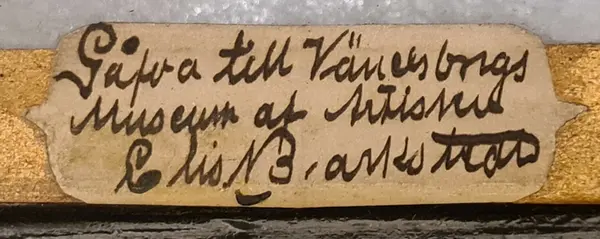 Gåfva till Vänersborgs
Museum af Artisten
Elis